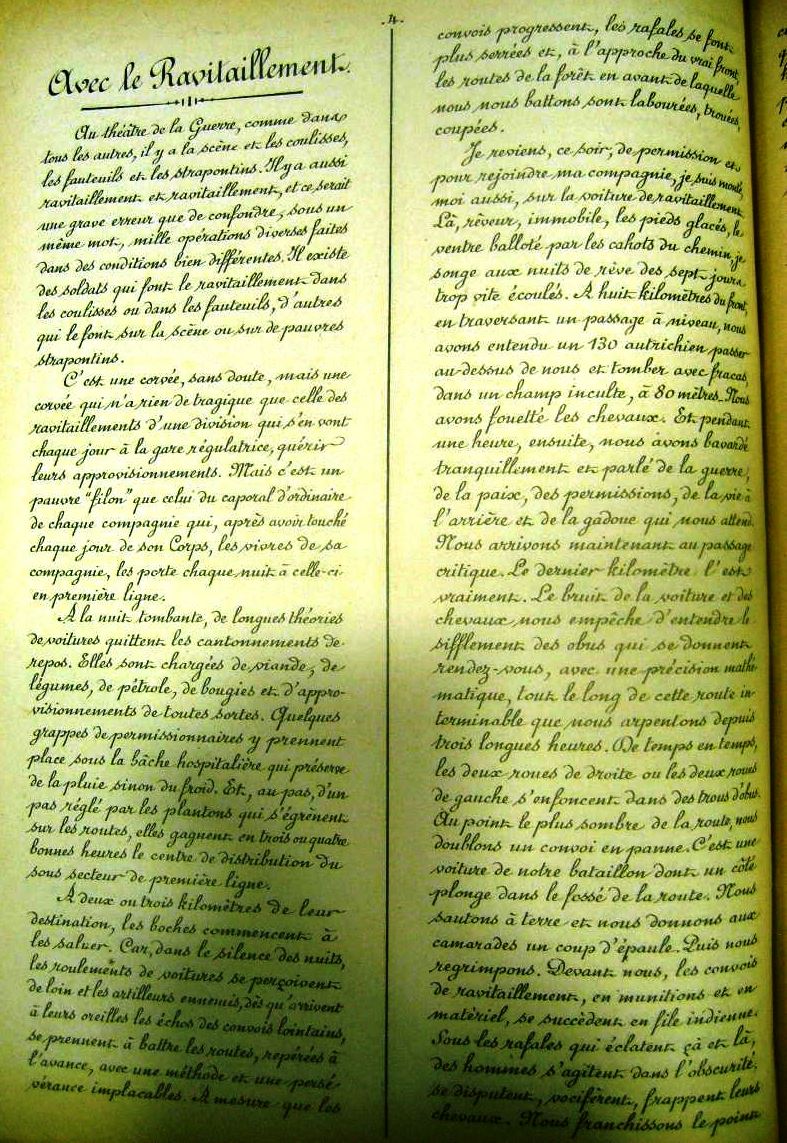 .4.
Avec le Ravitaillement.
Au théâtre de la Guerre, comme dans
tous les autres, il y a la scène et les coulisses,
les fauteuils et les strapontins. Il y a aussi
ravitaillement et ravitaillement, et ce serait
une grave erreur que de confondre, sous un
même mot, mille opérations diverses faites
dans des conditions bien différentes. Il existe
des soldats qui font le ravitaillement dans
les coulisses ou dans les fauteuils, d'autres
qui le font sur la scène ou sur de pauvres
strapontins.
C'est une corvée, sans doute, mais une
corvée qui n'a rien de tragique que celle des
ravitaillements d'une division qui s'en vont
chaque jour à la gare régulatrice, quérir
leurs approvisionnements. Mais c'est un
pauvre "filon" que celui du caporal d'ordinaire
de chaque compagnie qui, après avoir touché
chaque jour de son Corps, les vivres de sa
compagnie, les porte chaque nuit à celle-ci
en première ligne.
A la nuit tombante, de longues théories
de voitures quittent les cantonnements de
repos. Elles sont chargées de viande, de
légumes, de pétrole, de bougies et d'appro-
visionnements de toutes sortes. Quelques
grappes de permissionnaires y prennent
place sous la bâche hospitalière qui préserve
de la pluie sinon du froid. Et, au pas, d'un
pas réglé par les plantons qui s'égrènent
sur les routes, elles gagnent en trois ou quatre
bonnes heures le centre de distribution du
sous secteur de première ligne.
A deux ou trois kilomètres de leur
destination, les boches commencent à
les saluer. Car, dans le silence des nuits,
les roulements de voitures se perçoivent
de loin et les artilleurs ennemis, dès qu'arrivent
à leurs oreilles les échos des convois lointains,
se prennent à battre les routes, repérées à
l'avance, avec une méthode et une persé-
vérance implacables. A mesure que les
convois progressent, les rafales se font
plus serrées et, à l'approche du vrai front
les routes de la forêt en avant de laquelle
nous nous battons sont labourées, trouées,
coupées.
Je reviens, ce soir, de permission et
pour rejoindre ma compagnie, je suis monté
moi aussi, sur la voiture de ravitaillement.
Là, rêveur, immobile, les pieds glacés, le
ventre balloté par les cahots du chemin, je
songe aux nuits de rêve des sept jours
trop vite écoulés. A huit kilomètres du front,
en traversant un passage à niveau, nous
avons entendu un 130 autrichien passer
au-dessus de nous et tomber avec fracas
dans un champ inculte, à 80 mètres. Nous
avons fouetté les chevaux. Et pendant
une heure, ensuite, nous avons bavardé
tranquillement et parlé de la guerre,
de la paix, des permissions, de la vie à
l'arrière et de la gadoue qui nous attend.
Nous arrivons maintenant au passage
critique. Le dernier kilomètre l'est
vraiment. Le bruit de la voiture et des
chevaux nous empêche d'entendre le
sifflement des obus qui se donnent
rendez-vous, avec une précision mathé-
matique, tout le long de cette route in-
terminable que nous arpentons depuis
trois longues heures. De temps en temps,
les deux roues de droite ou les deux roues
de gauche s'enfoncent dans des trous d'obus.
Au point le plus sombre de la route, nous
doublons un convoi en panne. C'est une
voiture de notre bataillon dont un côté
plonge dans le fossé de la route. Nous
sautons à terre et nous donnons aux
camarades un coup d'épaule. Puis nous
regrimpons. Devant nous, les convois
de ravitaillement, en munitions et en
matériel, se succèdent en file indienne.
Sous les rafales qui éclatent çà et là,
des hommes s'agitent dans l'obscurité,
se disputent, vocifèrent, frappent leurs
chevaux. Nous franchissons le point